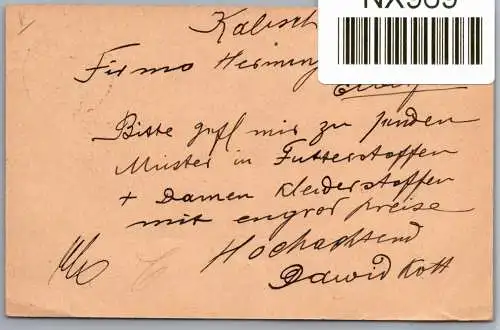 NX969
Kalisch
Firma Herming
Bitte gefl mir zu senden
Muster in Futterstoffen
+ Damen Kleiderstoffen
mit engros preise
Hochachtend
Dawid Kott